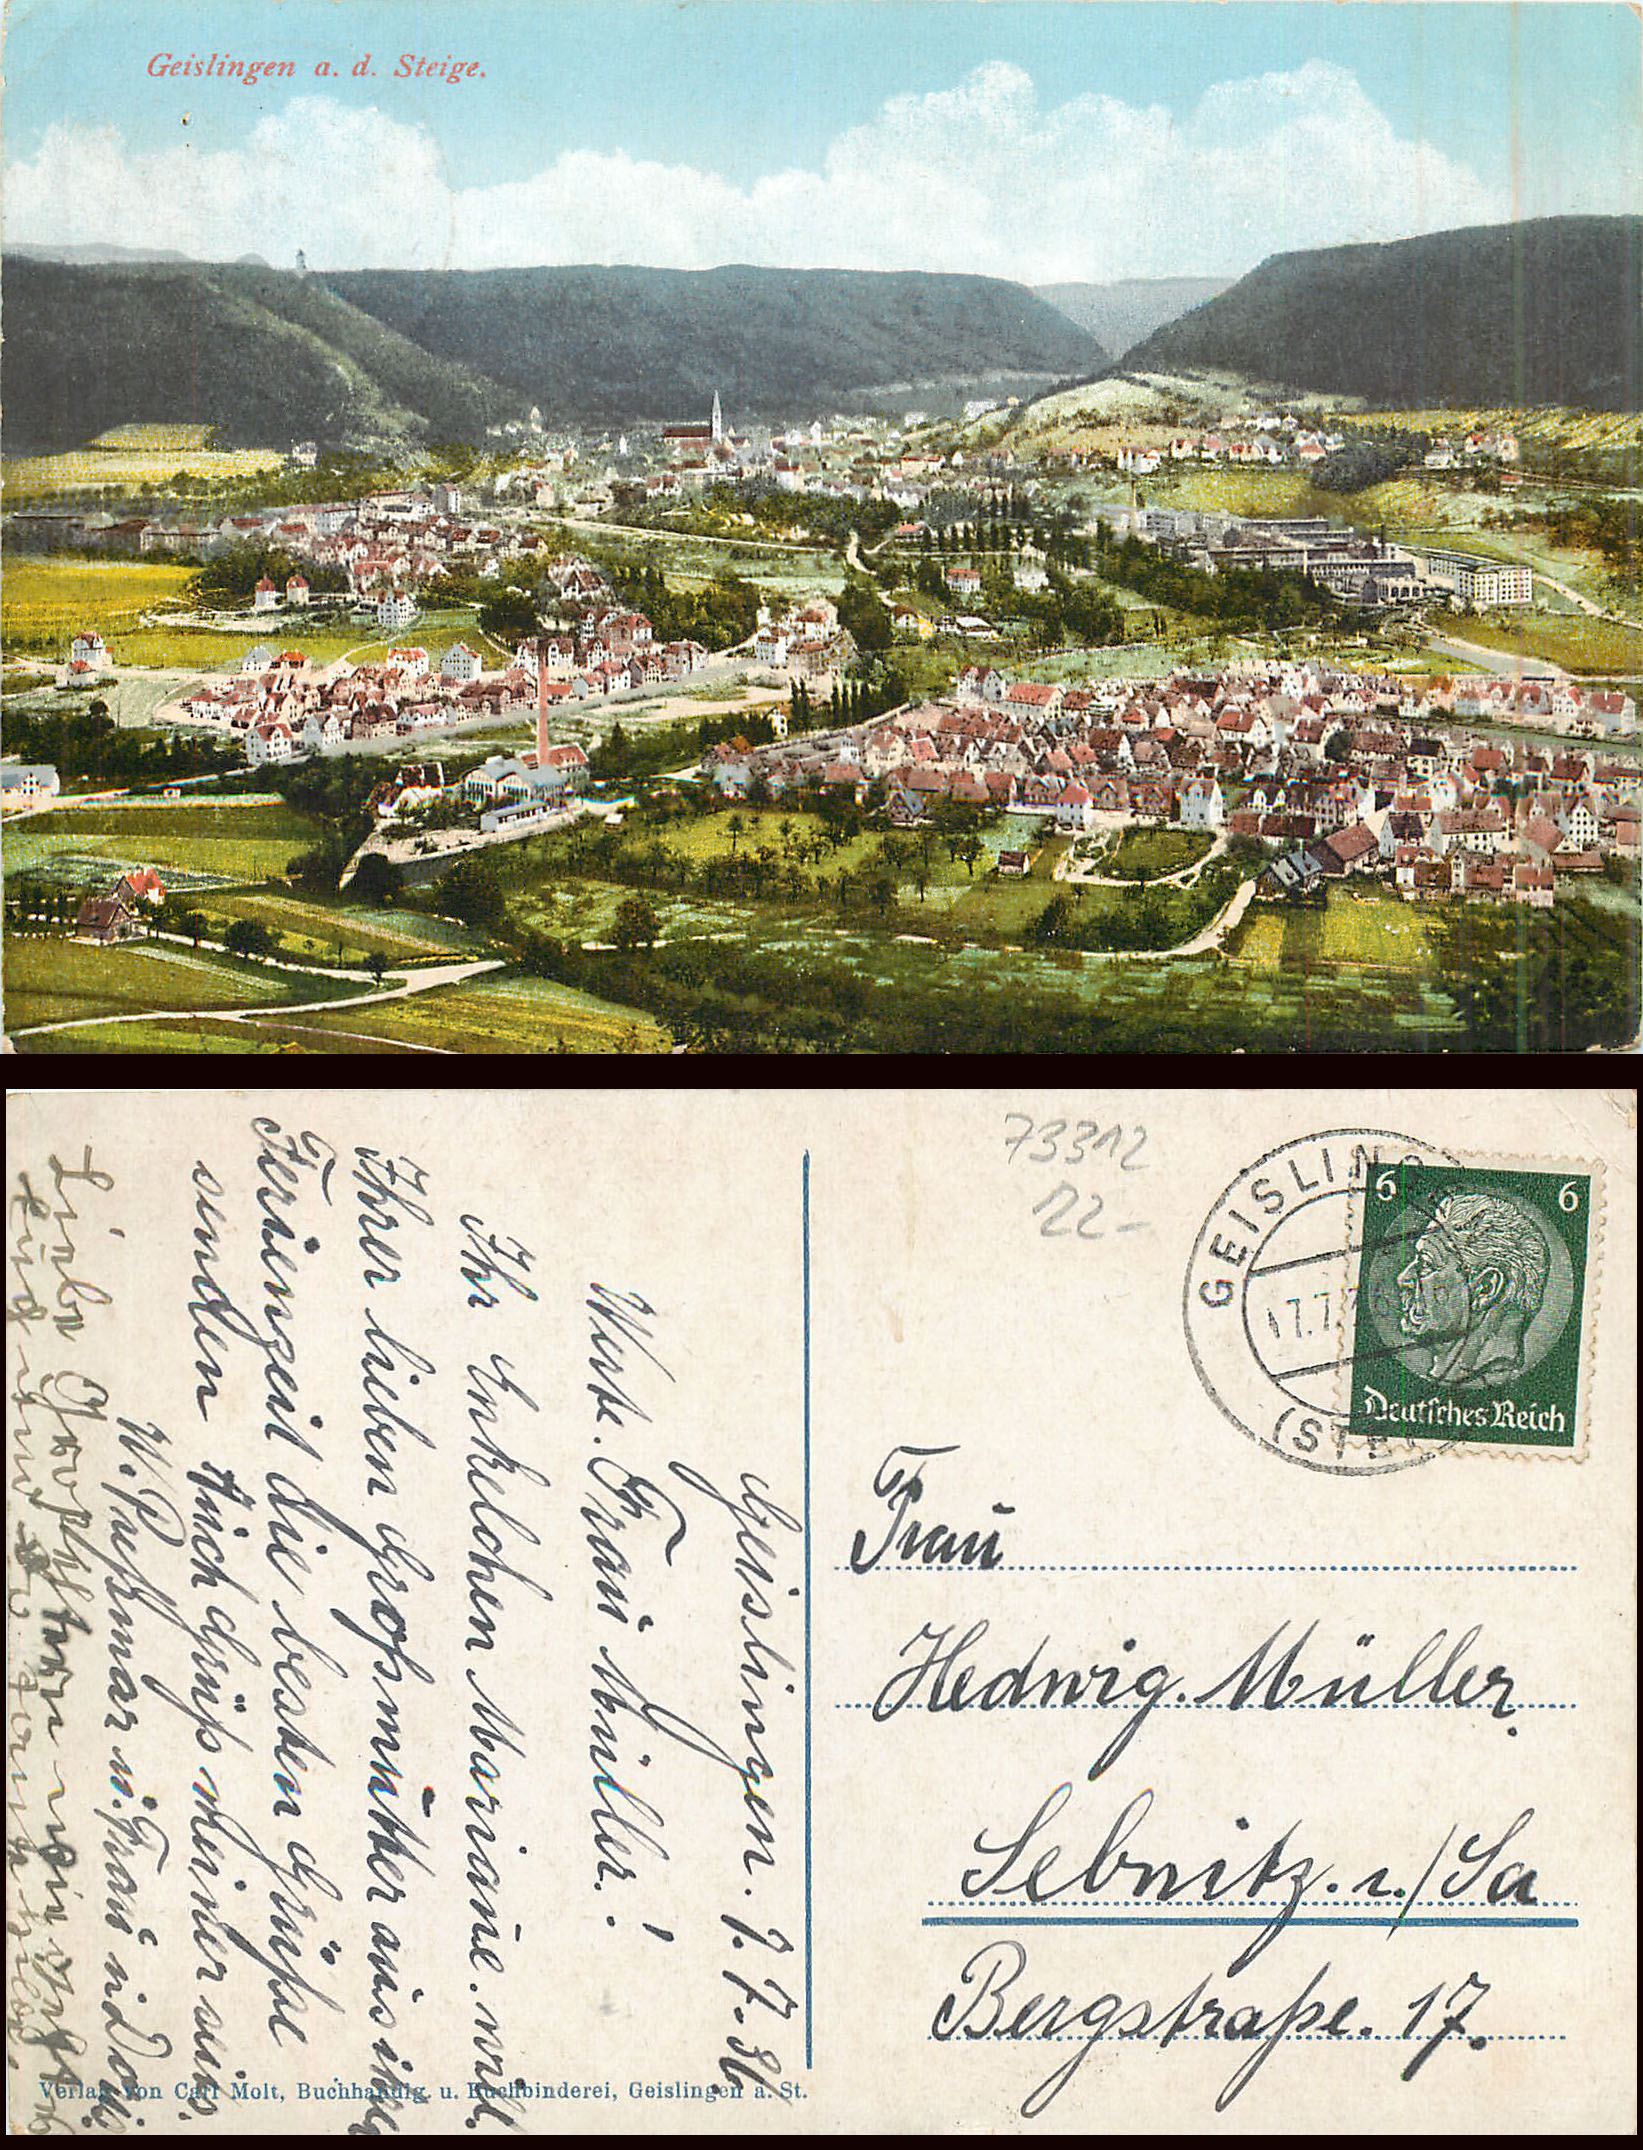 Geislingen a. d. Steige.
73312
22-
GEISLINGEN
(STEI
6
6
Deutsches Reich
Frau
Hedwig. Müller.
Sebnitz. i./Sa
Bergstraße. 17.
Geislingen. 7. 7. 36
Werte. Frau Müller. !
Ihr Enkelchen Mariane. will.
Ihrer lieben Großmutter aus ihrer
Ferienzeit die besten Grüße
senden Auch Grüß meiner seits.
W. u. Frau u Doris
Liebe
Verlag von Carl Molt, Buchhandlg. u. Buchbinderei, Geislingen a. St.